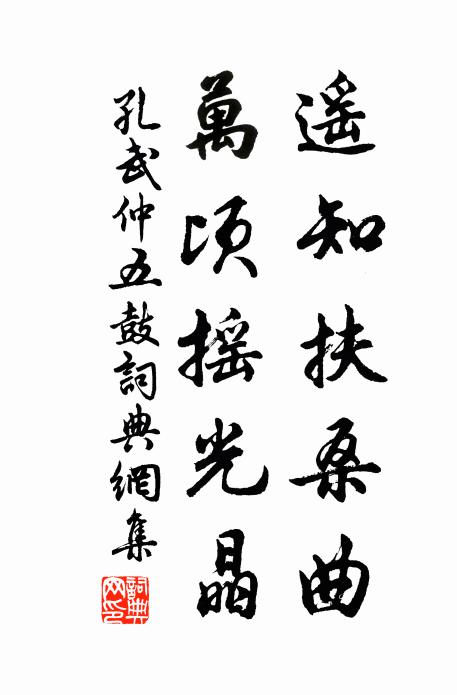 遥知扶桑曲
萬頃摇光晶
孔武仲五鼓詞典網集
詞典網印